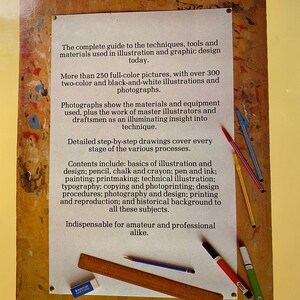 The complete guide to the techniques, tools and
materials used in illustration and graphic design
today.
More than 250 full-color pictures, with over 300
two-color and black-and-white illustrations and
photographs.
Photographs show the materials and equipment
used, plus the work of master illustrators and
draftsmen as an illuminating insight into
technique.
Detailed step-by-step drawings cover every
stage of the various processes.
Contents include: basics of illustration and
design; pencil, chalk and crayon; pen and ink;
painting; printmaking; technical illustration;
typography; copying and photoprinting; design
procedures; photography and design; printing
and reproduction; and historical background to
all these subjects.
Indispensable for amateur and professional
alike.